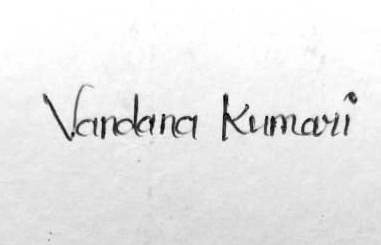 Vandana Kumari